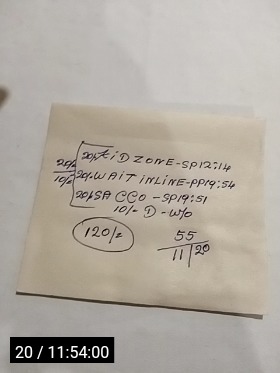 20/- KIDZONE-SP12:14
20/- WAIT INLINE-PP19:54
20/- SACCO-SP19:51
20/-
10/-
10/- D-W/O
120/-
55
11 | 20
20 / 11:54:00